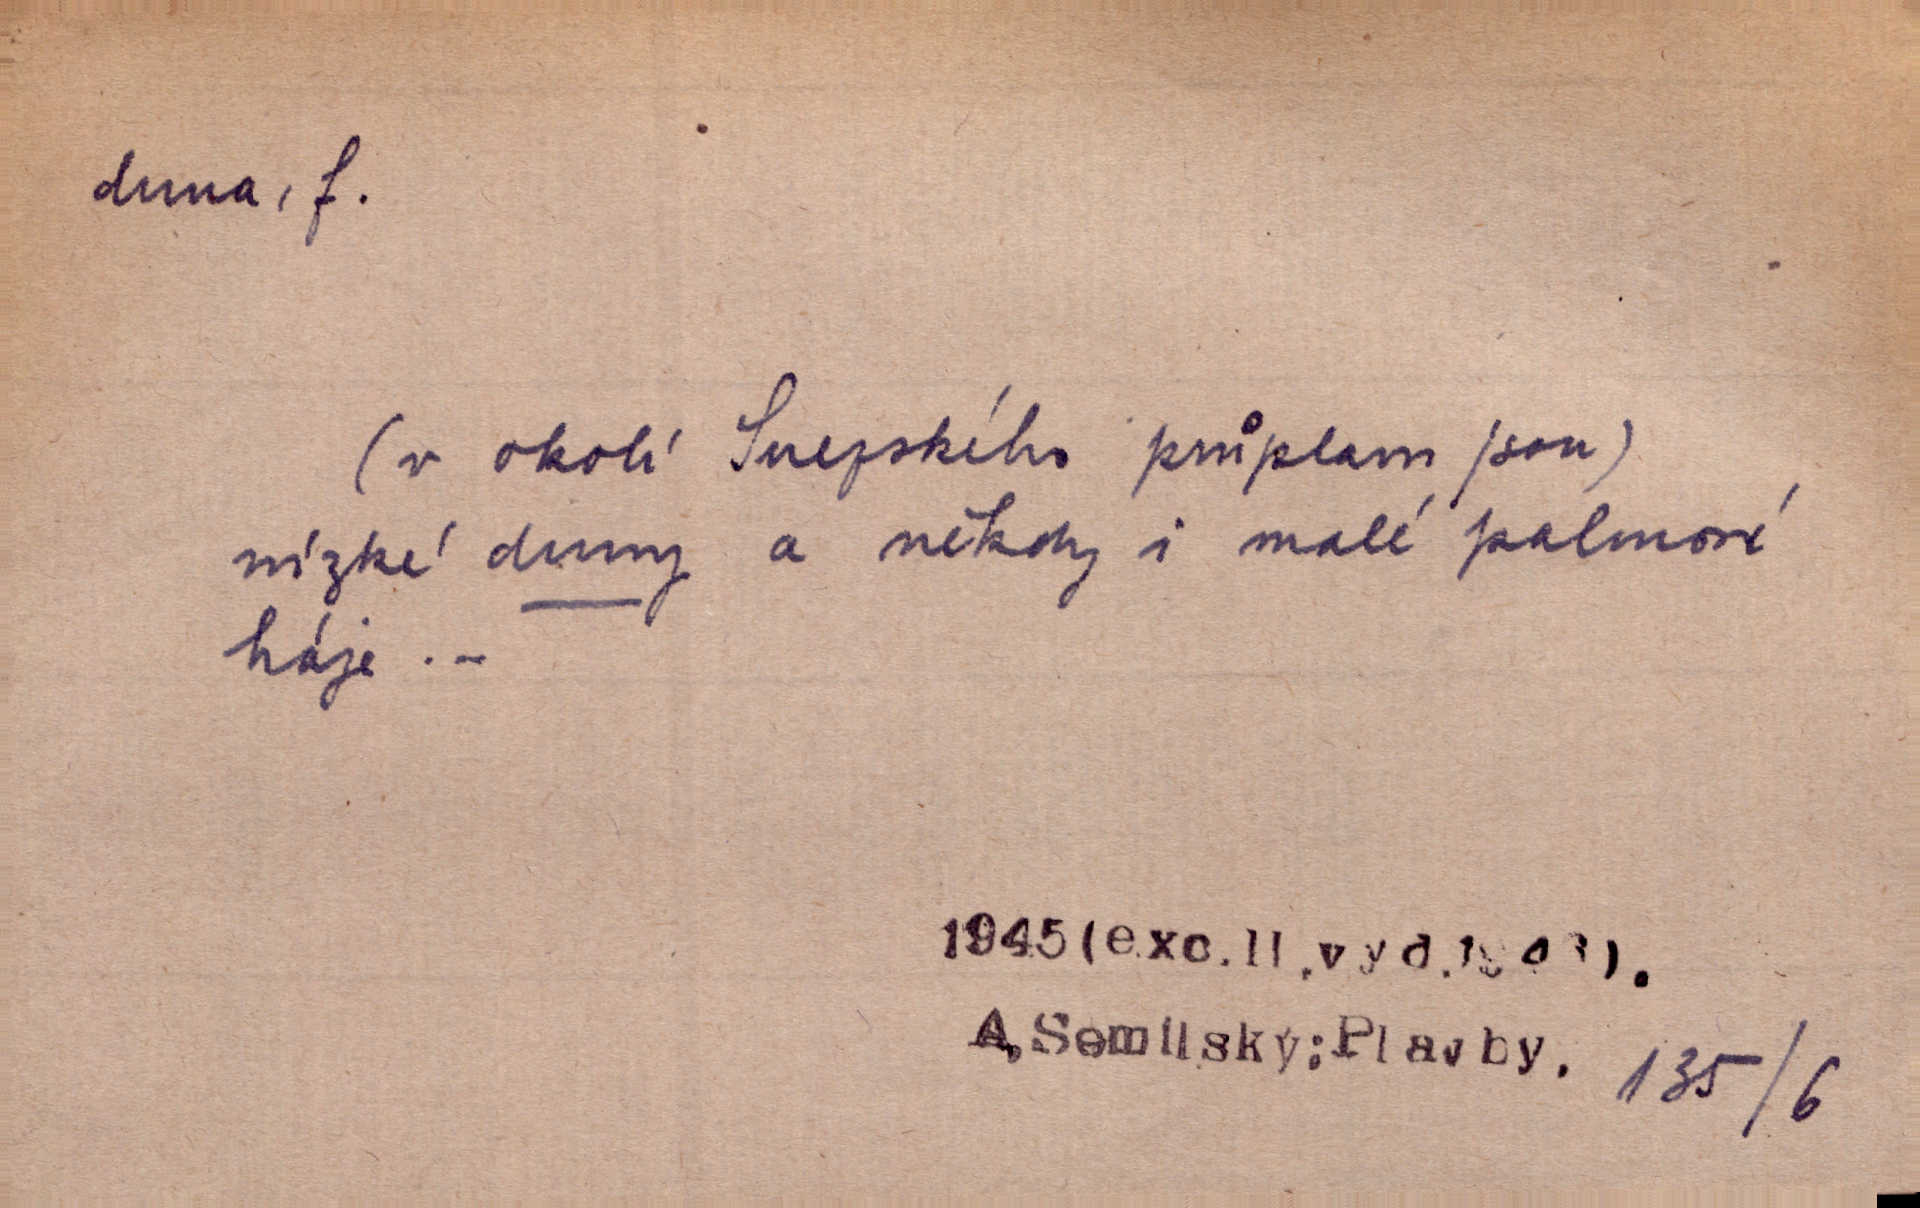 duna, f.
(v okolí Suezského průplavu jsou)
nízké duny a někdy i malé palmové
háje .-
1945(exc.II.vyd.1948).
A.Semilský:Plavby. 135/6